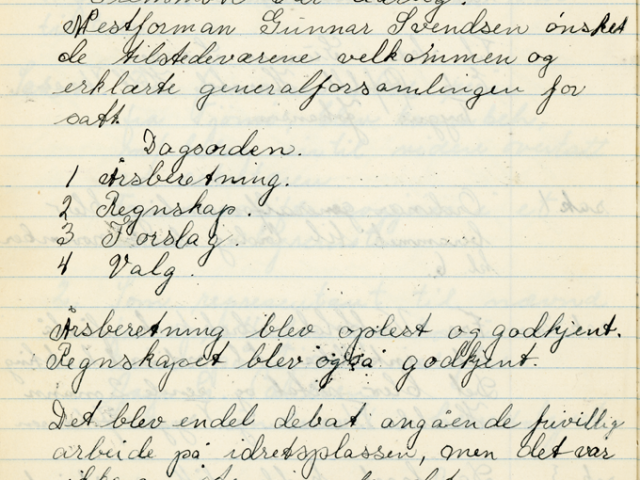 Nestforman Gunnar Svendsen ønsket
de tilstedeværene velkommen og
erklærte generalforsamlingen for
satt.
Dagsorden.
1 Årsberetning.
2 Regnskap.
3 Forslag.
4 Valg.
Årsberetning blev oplest og godkjent.
Regnskapet blev også godkjent.
Det blev endel debat angående frivillig
arbeide på idretsplassen, men det var